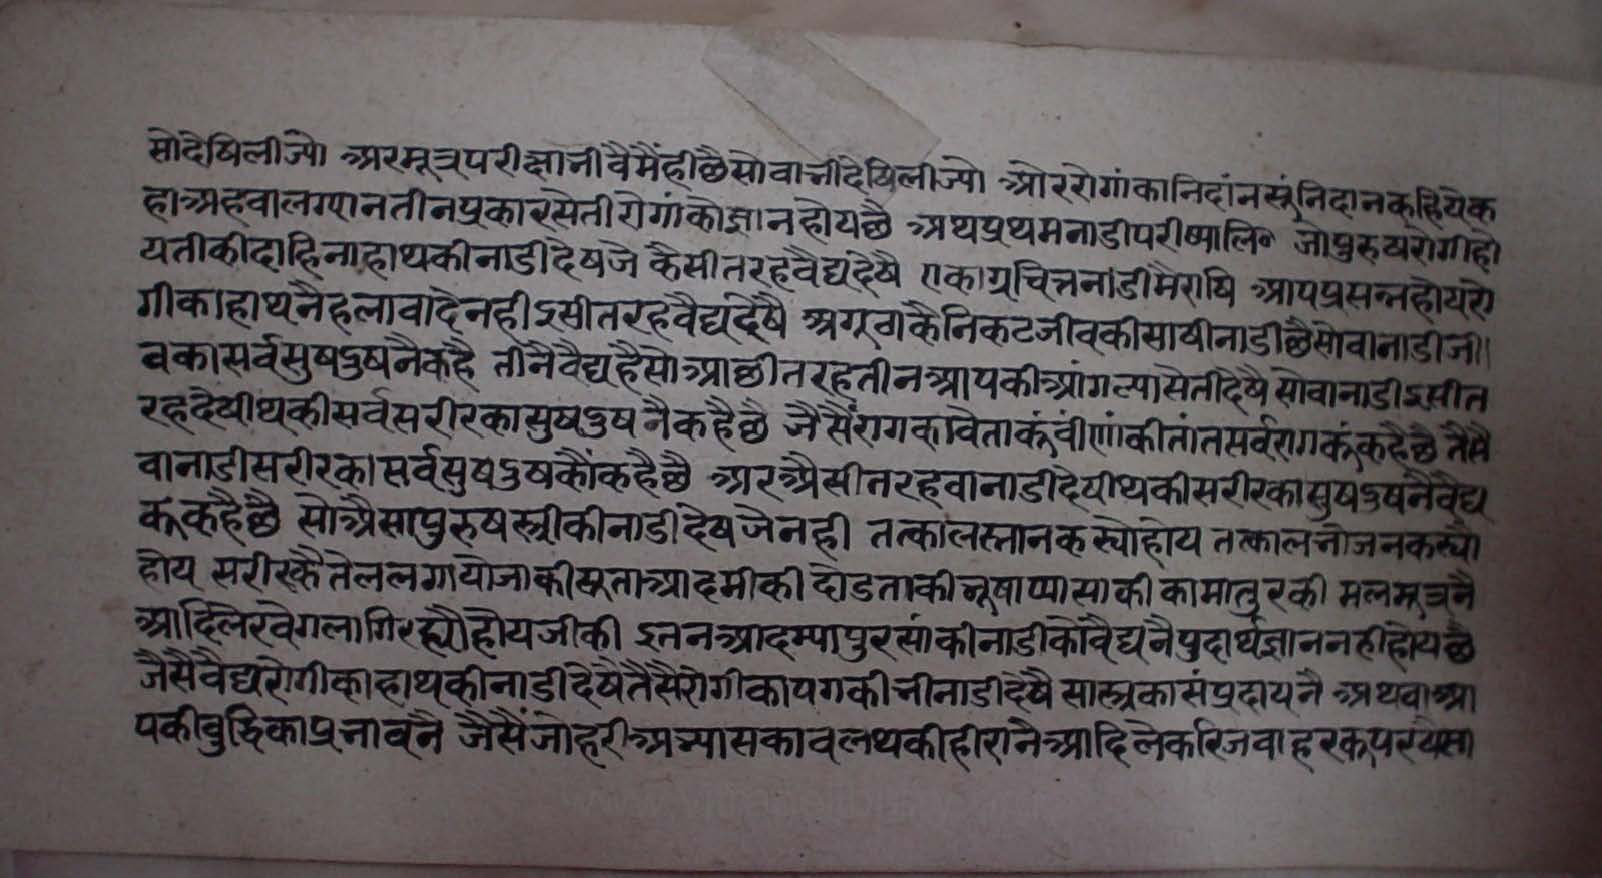 सोदेषिलीज्यो अरमूत्रपरीक्षाभीवैमैंहीछैसोवाभीदेषिलीज्यो ओररोगांकानिदांनसूंनिदानकहियेक
हाअहवालग्यानतीनप्रकारसैतीरोगांकोज्ञानहोयछै अथप्रथमनाडीपरीष्यालि॰ जोपुरुषरोगीहो
यतीकीदाहिनाहाथकीनाडीदेषजे कैसीतरहवैद्यदेषै एकाग्रचित्तनाडीमैराषि आपप्रसन्नहोयरो
गीकाहाथनैहलावादेनहीऽसीतरहवैद्यदेषै अगूठाकैनिकटजीवकीसाषीनाडीछैसोवानाडीजी
वकासर्वसुषदुषनैकहै तीनैवैद्यहैसोआछीतरहतीनआपकीआंगल्यासेतीदेषै सोवानाडीऽसीत
रहदेषीथकीसर्वसरीरकासुषदुषनैकहैछै जैसैंरागकावेताकूंवीणांकीतांतसर्वरागकूंकहैछै तैसै
वानाडीसरीरकासर्वसुषदुषकौंकहैछै अरऐसीतरहवानाडीदेषीथकीसरीरकासुषदुषनैवैद्य
कूंकहैछै सोऐसापुरुषस्त्रीकीनाडीदेषजेनही तत्कालस्नानकस्योहोय तत्कालभोजनकस्यो
होय सरीरकैतेललगायोजाकीसूताआदमीकी दोडताकीभूषाप्यासाकीकामातुरकी मलमूत्रनै
आदिलेरवेगलागिरह्योहोयजीकी ऽतनआदम्यापुरसांकीनाडीकोवैद्यनैपुदार्थज्ञाननहीहोयछै
जैसैवैद्यरोगीकाहाथकीनाडीदेषैतैसैरोगीकापगकीभीनाडीदेषै सास्त्रकासंप्रदायनै अथवाआ
पकीवुद्धिकाप्रभावनै जैसैंजोहरीअभ्यासकावलथकीहीरानैआदिलेकरिजवाहरकूपरषैसा